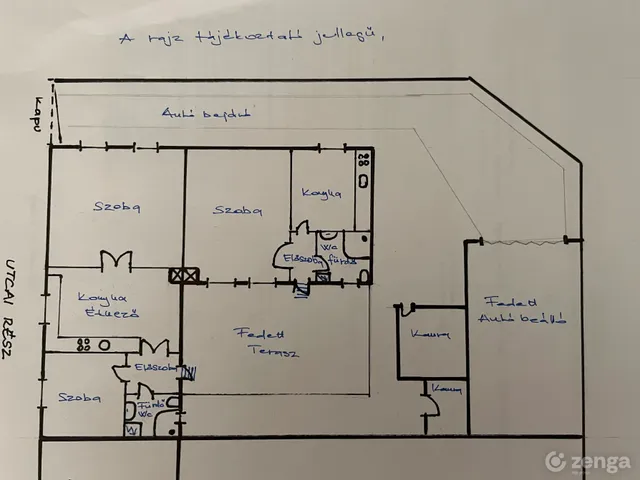 A rajz tájékoztató jellegű,
Kapu
Autó bejáró
Szoba
Szoba
Konyha
WC
Előszoba
fürdő
UTCAI RÉSZ
Konyha
Étkező
Fedett
Terasz
Kamra
Fedett
Autó beálló
Előszoba
Kamra
Szoba
Fürdő
WC
zenga